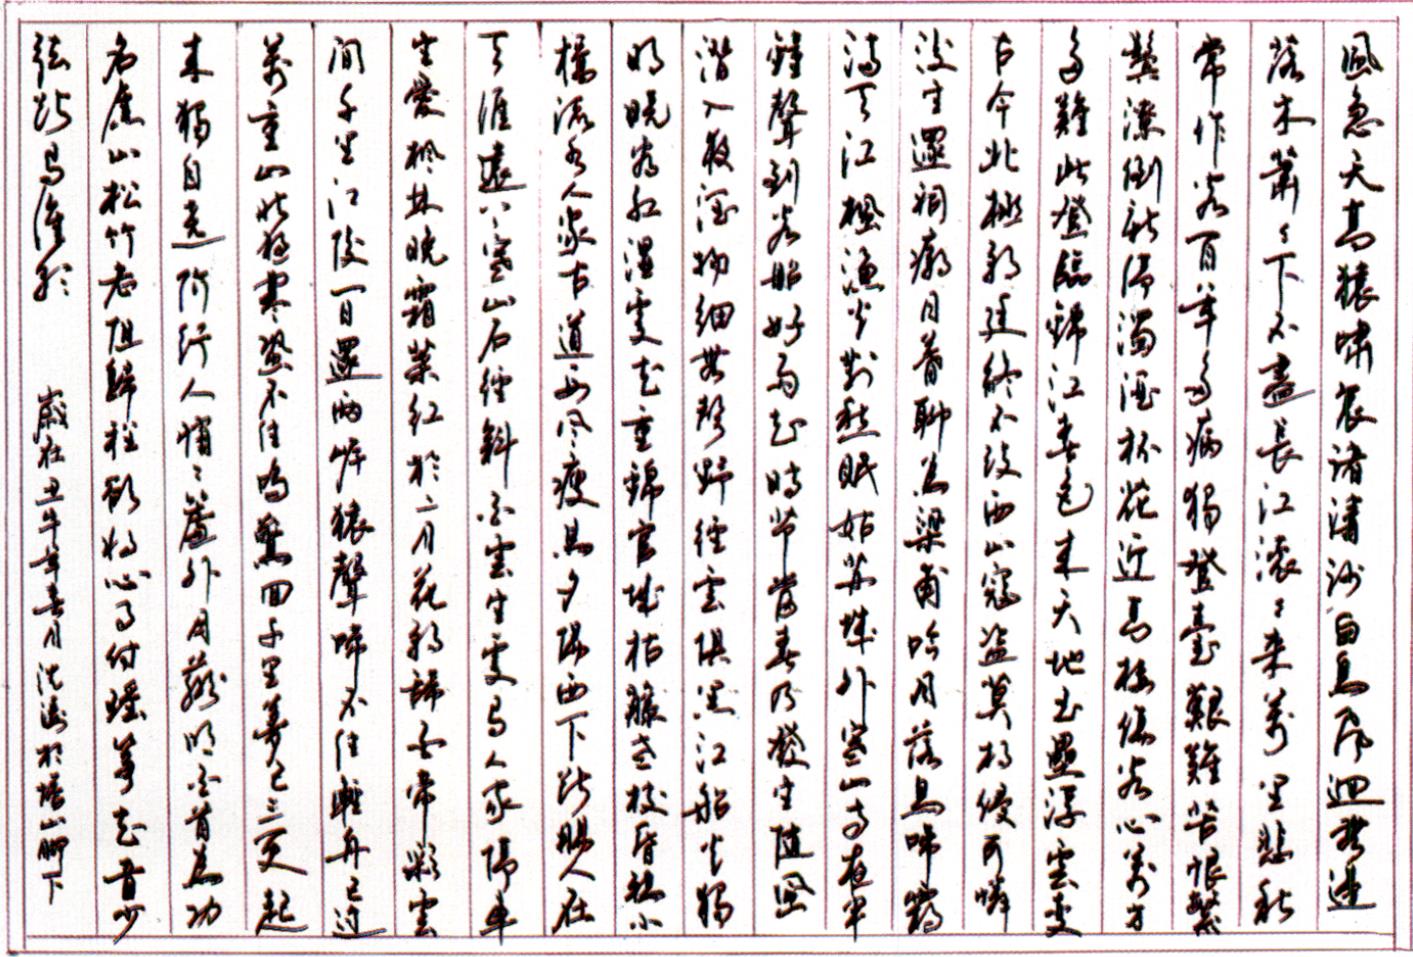 風急天高猿嘯哀渚清沙白鳥飛迴無邊
落木蕭々下不盡長江滾々來萬里悲秋
常作客百年多病獨登臺艱難苦恨繁霜
鬢潦倒新停濁酒杯花近高樓傷客心萬方
多難此登臨錦江春色來天地玉壘浮雲變
古今北極朝廷終不改西山寇盜莫相侵可憐
後主還祠廟日暮聊為梁甫吟月落烏啼霜
滿天江楓漁火對愁眠姑蘇城外寒山寺夜半
鐘聲到客船好雨知時節當春乃發生隨風
潛入夜潤物細無聲野徑雲俱黑江船火獨
明曉看紅濕處花重錦官城枯藤老樹昏鴉小
橋流水人家古道西風瘦馬夕陽西下斷腸人在
天涯遠上寒山石徑斜白雲生處有人家停車
坐愛楓林晚霜葉紅於二月花朝辭白帝彩雲
間千里江陵一日還兩岸猿聲啼不住輕舟已過
萬重山昨夜寒蛩不住鳴驚回千里夢已三更起
來獨自繞階行人悄々簾外月朧明白首為功
名舊山松竹老阻歸程欲將心事付瑤箏知音少
弦斷有誰聽 歲在 年春月 於 山腳下